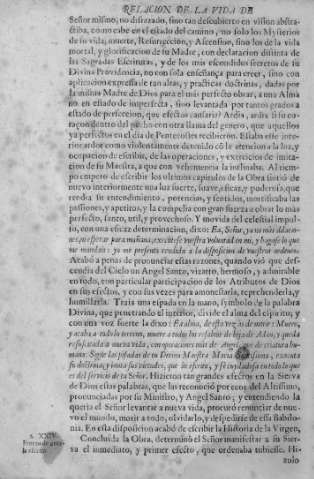 RELACION DE LA VIDA DE
Señor mismo, no disfrazado, sino tan descubierto en vision abstra-
ctiva, como cabe en el estado del camino, no solo los Mysterios
de su vida, muerte, Resurreccion, y Ascension, sino los de la vida
mortal, y glorificacion de su Madre, con declaracion distinta de
las Sagradas Escrituras, y de los mas escondidos secretos de su
Divina Providencia, no con sola enseñança para creer, sino con
aplicacion expressa de tan altas, y practicas doctrinas, dadas por
la misma Madre de Dios para el mas perfecto obrar, a una Alma
no en estado de imperfecta, sino levantada por tantos grados a
estado de perfeccion, que efectos causaria? Ardia, ardia su co-
raçon dentro del pecho con otra llama del genero, que aquellos
ya perfectos en el dia de Pentecostes recibieron. Estaba este inte-
rior ardor como violentamente detenido con la atencion a la luz, y
ocupacion de escribir, de las operaciones, y exercicios de imita-
cion de su Maestra, a que con vehemencia la instimulaba. Al tiem-
po empero de escribir los ultimos capitulos de la Obra sintió de
nuevo interiormente una luz fuerte, suave, eficaz, y poderosa, que
rendia su entendimiento, potencias, y sentidos, mortificaba las
passiones, y apetitos, y la compelia con gran fuerza a obrar lo mas
perfecto, santo, util, y provechoso. Y movida del celestial impul-
so, con una eficaz determinacion, dixo: Ea, Señor, ya no más dilacio-
nes, que esperar para mañana, executese vuestra voluntad en mi, y hagase lo que
me mandais: yo me presento rendida a la disposicion de vuestras ordenes.
Acabó a penas de pronunciar estas razones, quando viò que des-
cendia del Cielo un Angel Santo, vizarro, hermoso, y admirable
en todo, con particular participacion de los Atributos de Dios
en sus efectos, y con sus vezes para amonestarla, reprehenderla, y
humillarla. Traìa una espada en la mano, symbolo de la palabra
Divina, que penetrando el interior, divide el alma del espiritu, y
con una voz fuerte la dixo: Ea alma, de esta vez has de morir: Muere,
y acaba a todo lo terreno, muere a todos los resabios de hija de Adan, y queda
resuscitada a nueva vida, con operaciones mas de Angel, que de criatura huma-
na. Sigue las pisadas de tu Divina Maestra Maria Santissima, executa
su doctrina, y imita sus virtudes, que te espera, y se te ayudará en todo lo que
es del servicio de tu Señor. Hizieron tan grandes efectos en la Sierva
de Dios estas palabras, que las reconoció por eco del Altissimo,
pronunciadas por su Ministro, y Angel Santo; y entendiendo la
queria el Señor levantar a nueva vida, procurò renunciar de nue-
vo el mundo, morir a todo, olvidarlo, y despedirse de essa babilo-
nia. En esta disposicion acabò de escribir la Historia de la Virgen,
§. XXIV.
Concluida la Obra, determinó el Señor manifestar a su Sier-
va el inmediato, y primer efecto, que ordenaba tubiesse. Hi-
zolo